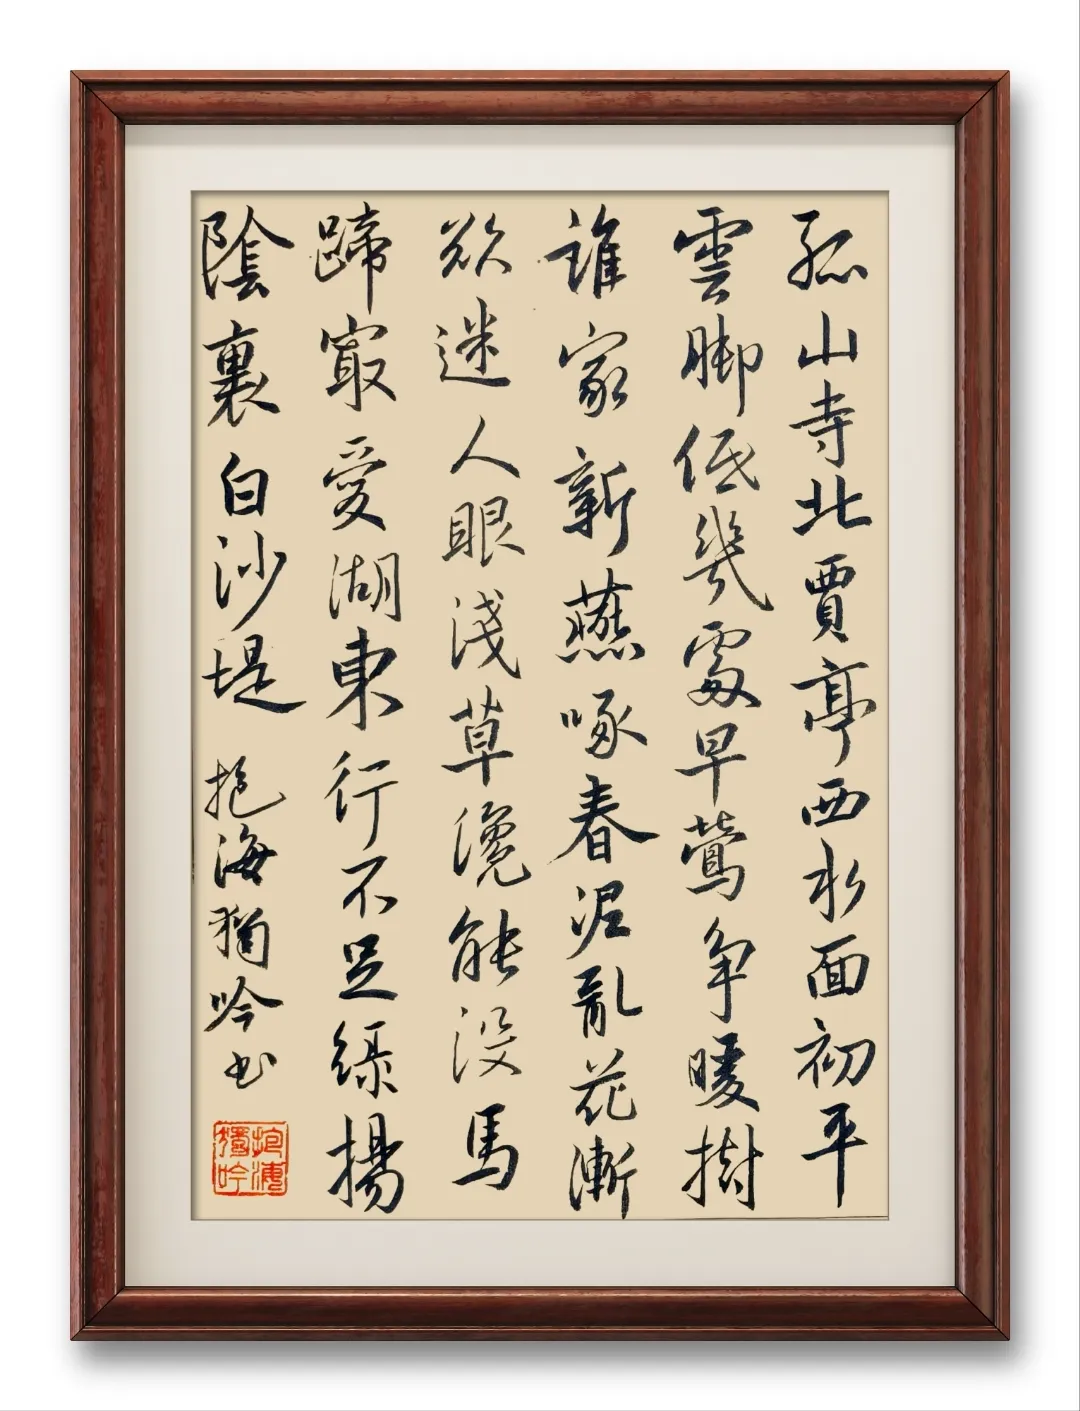 孤山寺北賈亭西水面初平
雲脚低幾處早鶯争暖樹
誰家新燕啄春泥亂花漸
欲迷人眼淺草纔能没馬
蹄㝡愛湖東行不足緑楊
陰裏白沙堤 抱海獨吟书
抱海獨吟